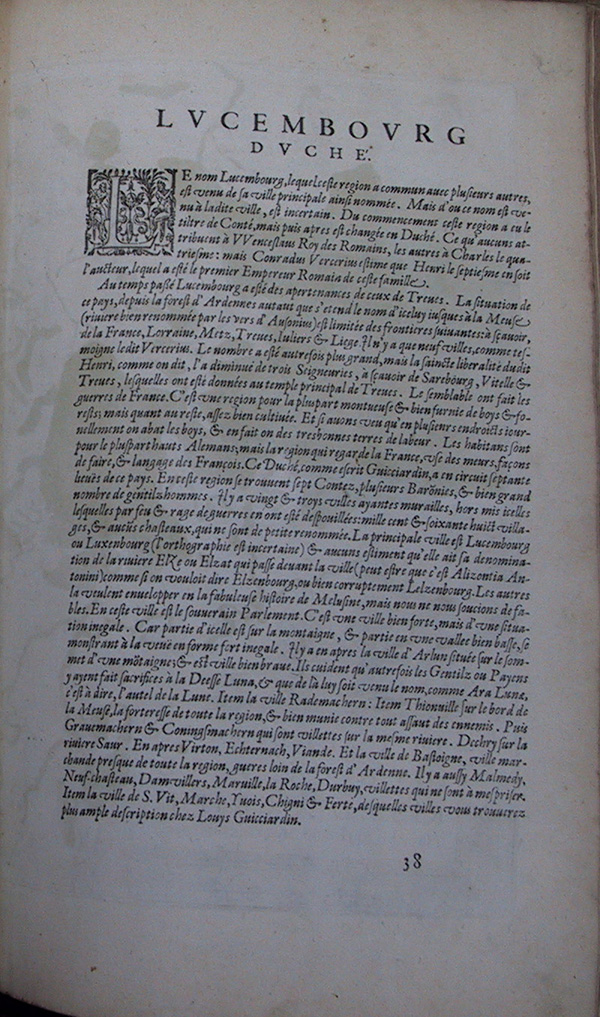 LVCEMBOVRG
DVCHE'.
LE nom Lucembourg, lequel ceste region a commun auec plusieurs autres,
est venu de sa ville principale ainsi nommée. Mais d'ou ce nom est ve-
nu à ladite ville, est incertain. Du commencement ceste region a eu le
tiltre de Conté, mais puis apres est changée en Duché. Ce qu'aucuns at-
tribuent à VVenceslaus Roy des Romains, les autres à Charles le qua-
triesme: mais Conradus Vercerius estime que Henri le septiesme en soit
l'aucteur, lequel a esté le premier Empereur Romain de ceste famille.
Au temps passé Lucembourg a esté des apertenances de ceux de Treues. La situation de
ce pays, depuis la forest d'Ardennes autant que s'etend le nom d'iceluy iusques à la Meuse
(riuiere bien renommée par les vers d'Ausonius) est limitée des frontieres suiuantes: à sçauoir,
de la France, Lorraine, Metz, Treues, Iuliers & Liege. Il n'y a que neuf villes, comme tes-
moigne ledit Vercerius. Le nombre a esté autrefois plus grand, mais la saincte liberalité dudit
Henri, comme on dit, l'a diminué de trois Seigneuries, à sçauoir de Sarebourg, Vitelle &
Treues, lesquelles ont esté données au temple principal de Treues. Le semblable ont fait les
guerres de France. C'est vne region pour la pluspart montueuse & bien furnie de boys & fo-
rests; mais quant au reste, assez bien cultiuée. Et si auons veu qu'en plusieurs endroicts iour-
nellement on abat les boys, & en fait on des tresbonnes terres de labeur. Les habitans sont
pour le pluspart hauts Alemans; mais la region qui regarde la France, vse des meurs, façons
de faire, & langage des François. Ce Duché, comme escrit Guicciardin, a en circuit septante
lieuës de ce pays. En ceste region se trouuent sept Contez, plusieurs Barõnies, & bien grand
nombre de gentilzhommes. Il y a vingt & troys villes ayantes murailles, hors mis icelles
lesquelles par feu & rage de guerres en ont esté despouillées: mille cent & soixante huict villa-
ges, & aucũs chasteaux, qui ne sont de petite renommée. La principale ville est Lucembourg
ou Luxenbourg (l'orthographie est incertaine) & aucuns estiment qu'elle ait sa denomina-
tion de la riuiere ElZe ou Elzat qui passe deuant la ville (peut estre que c'est Alizontia An-
tonini) comme si on vouloit dire Elzenbourg, ou bien corruptement Lelzenbourg. Les autres
la veulent enuelopper en la fabuleuse histoire de Melusine, mais nous ne nous soucions de fa-
bles. En ceste ville est le souuerain Parlement. C'est vne ville bien forte, mais d'vne situa-
tion inegale. Car partie d'icelle est sur la montaigne, & partie en vne vallee bien basse, se
monstrant à la veuë en forme fort inegale. Il y a en apres la ville d'Arlun située sur le som-
met d'vne mõtaigne; & est ville bien braue. Ils cuident qu'autrefois les Gentilz ou Payens
y ayent fait sacrifices à la Deesse Luna, & que de là luy soit venu le nom, comme Ara Lunæ,
c'est à dire, l'autel de la Lune. Item la ville Rademachern: Item Thionuille sur le bord de
la Meuse, la forteresse de toute la region, & bien munie contre tout assaut des ennemis. Puis
Grauemachern & Coningsmachern qui sont villettes sur la mesme riuiere. Diechry sur la
riuiere Saur. En apres Virton, Echternach, Viande. Et la ville de Bastoigne, ville mar-
chande presque de toute la region, gueres loin de la forest d'Ardenne. Il y a aussy Malmedy,
Neuf-chasteau, Damvillers, Maruille, la Roche, Durbuy, villettes qui ne sont à mespriser.
Item la ville de S. Vit, Marche, Yuois, Chigni & Ferte, desquelles villes vous trouuerez
plus ample description chez Louys Guicciardin.
38